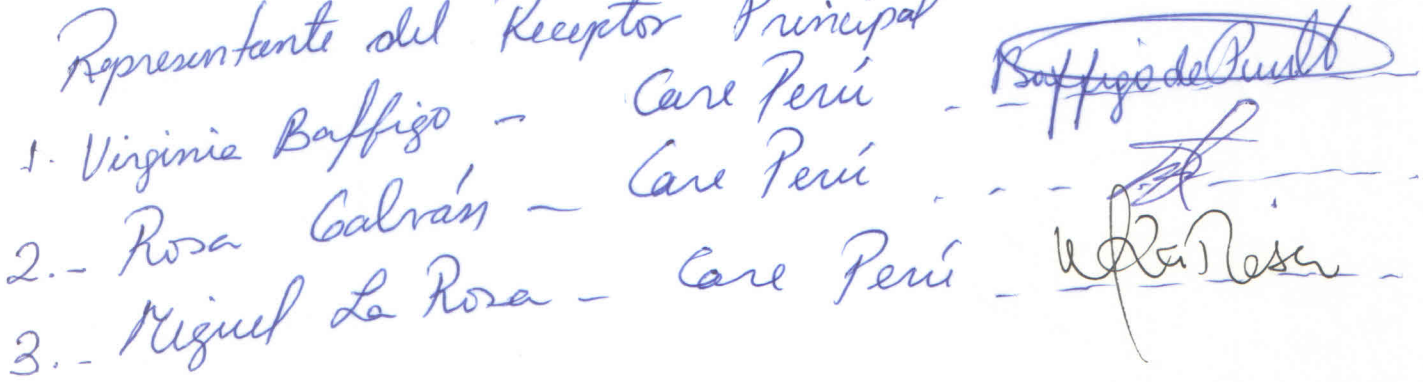 Representante del Receptor Principal
1. Virginia Baffigo - Care Perú - Baffigo de
2.- Rosa Galván - Care Perú
3.- Miguel La Rosa - Care Perú - La Rosa